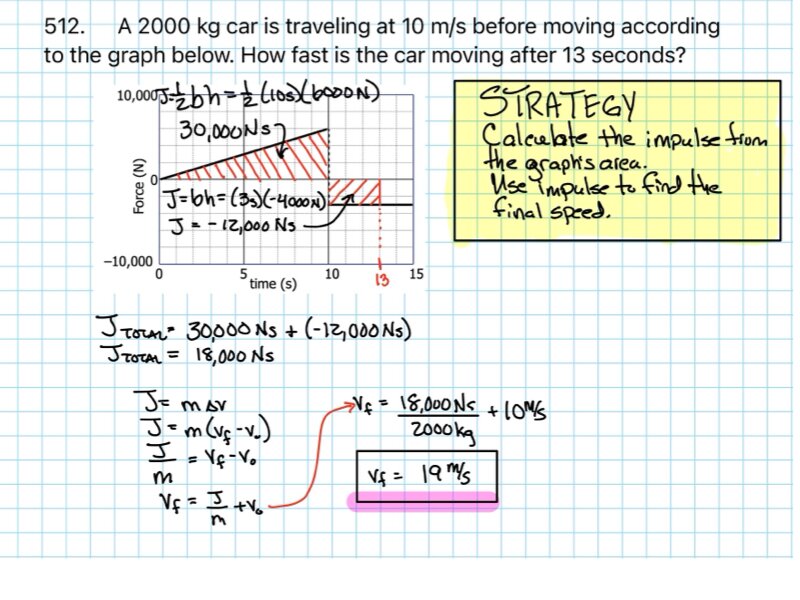 512. A 2000 kg car is traveling at 10 m/s before moving according
to the graph below. How fast is the car moving after 13 seconds?
10,000
J=½bh=½(10s)(6000N)
30,000Ns
Force (N)
0
J=bh=(3s)(-4000N)
J = -12,000 Ns
-10,000
0 5 10 15
13
time (s)
STRATEGY
Calculate the impulse from
the graphs area.
Use impulse to find the
final speed.
J TOTAL = 30,000 Ns + (-12,000 Ns)
J TOTAL = 18,000 Ns
J = m Δv
J = m(vf - v₀)
J/m = vf - v₀
vf = J/m + v₀
vf = 18,000Ns/2000kg + 10 m/s
vf = 19 m/s